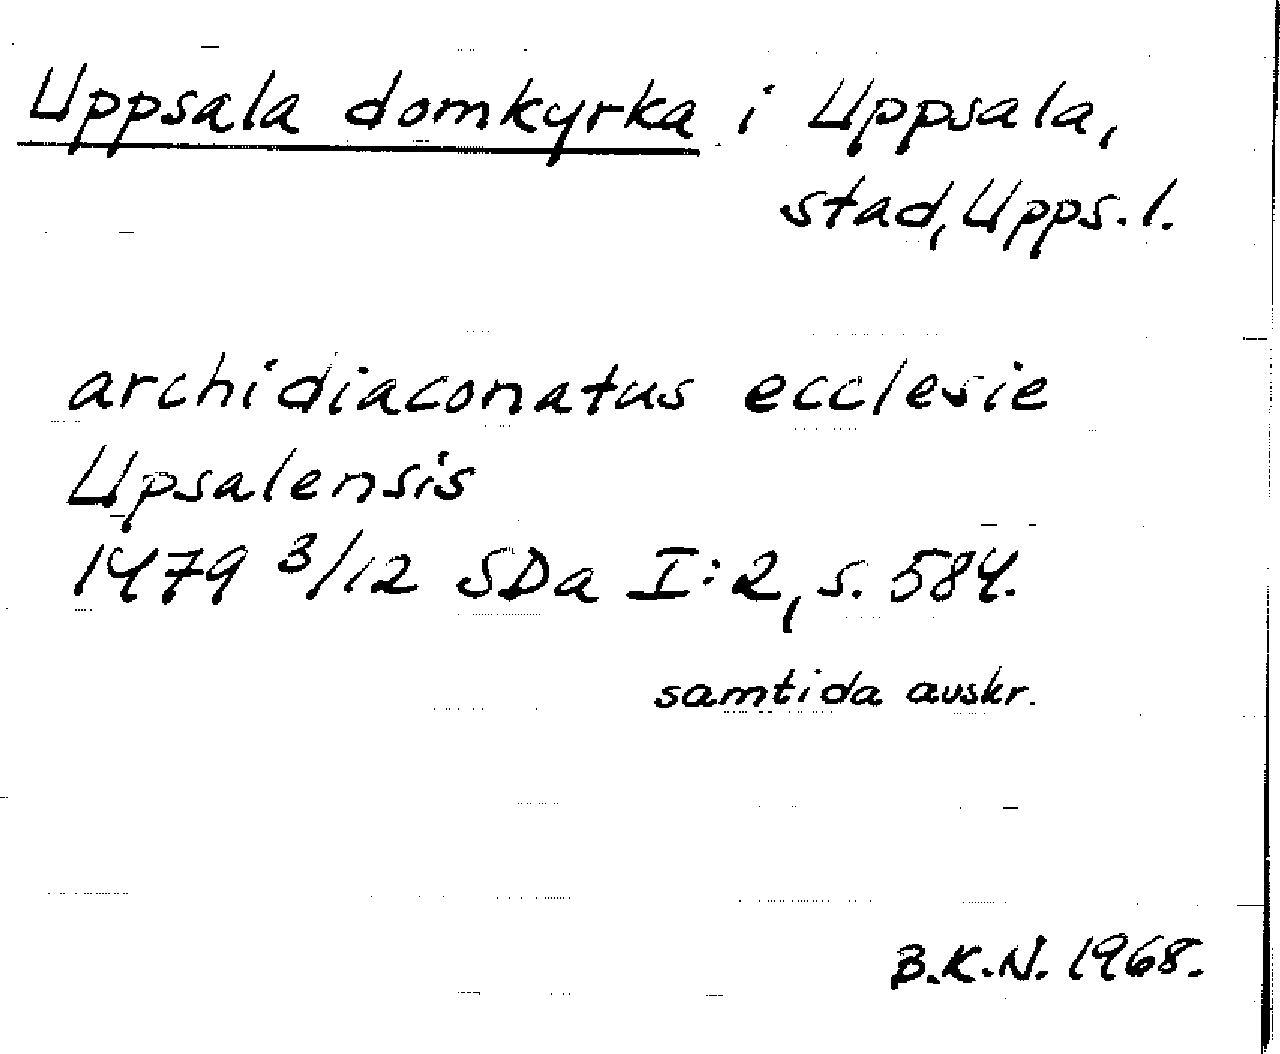 Uppsala domkyrka i Uppsala,
stad, Upps. l.
archidiaconatus ecclesie
Upsalensis
1479 3/12 SDa I:2, s. 584.
samtida avskr.
B.K.N. 1968.